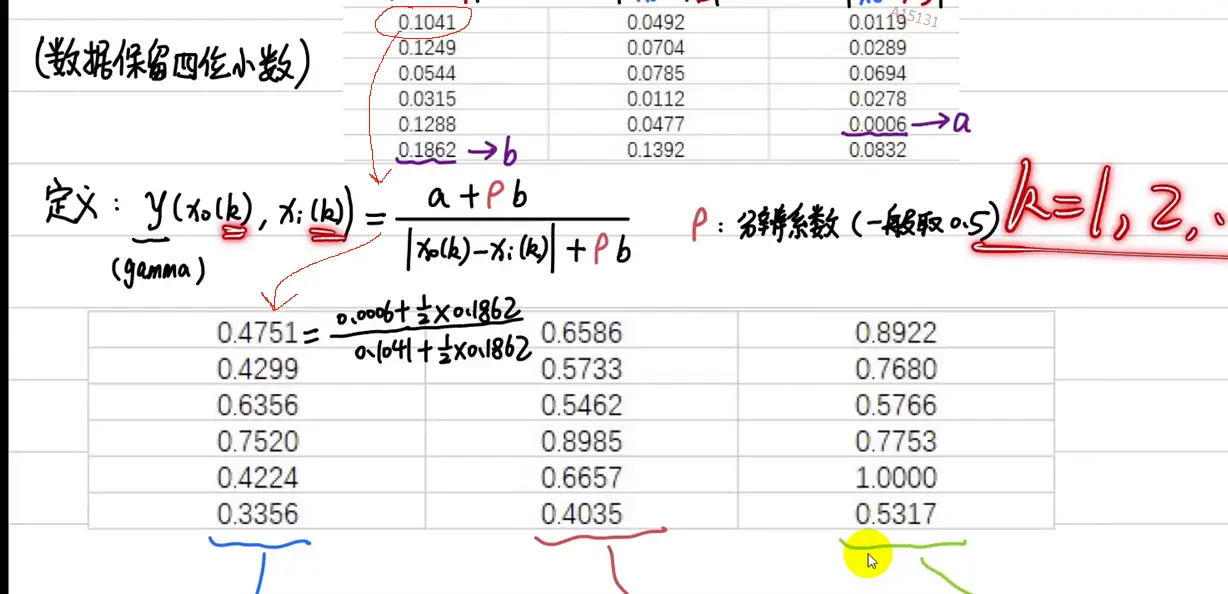 A15131
0.1041 0.0492 0.0119
(数据保留四位小数)
0.1249 0.0704 0.0289
0.0544 0.0785 0.0694
0.0315 0.0112 0.0278
0.1288 0.0477 0.0006 →a
0.1862 →b 0.1392 0.0832
定义: y(x₀(k), xᵢ(k)) = (a + ρb) / (|x₀(k)-xᵢ(k)| + ρb)
ρ: 分辨系数 (一般取0.5)
k=1, 2,
(gamma)
0.4751 = (0.0006+½×0.1862) / (0.1041+½×0.1862) 0.6586 0.8922
0.4299 0.5733 0.7680
0.6356 0.5462 0.5766
0.7520 0.8985 0.7753
0.4224 0.6657 1.0000
0.3356 0.4035 0.5317